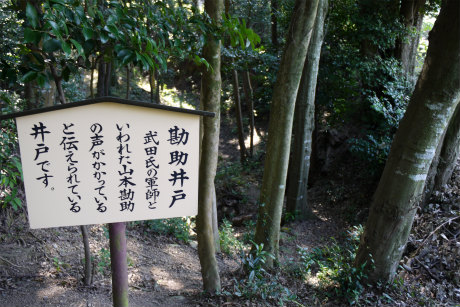 勘助井戸
武田氏の軍師と
いわれた山本勘助
の声がかかっている
と伝えられている
井戸です。